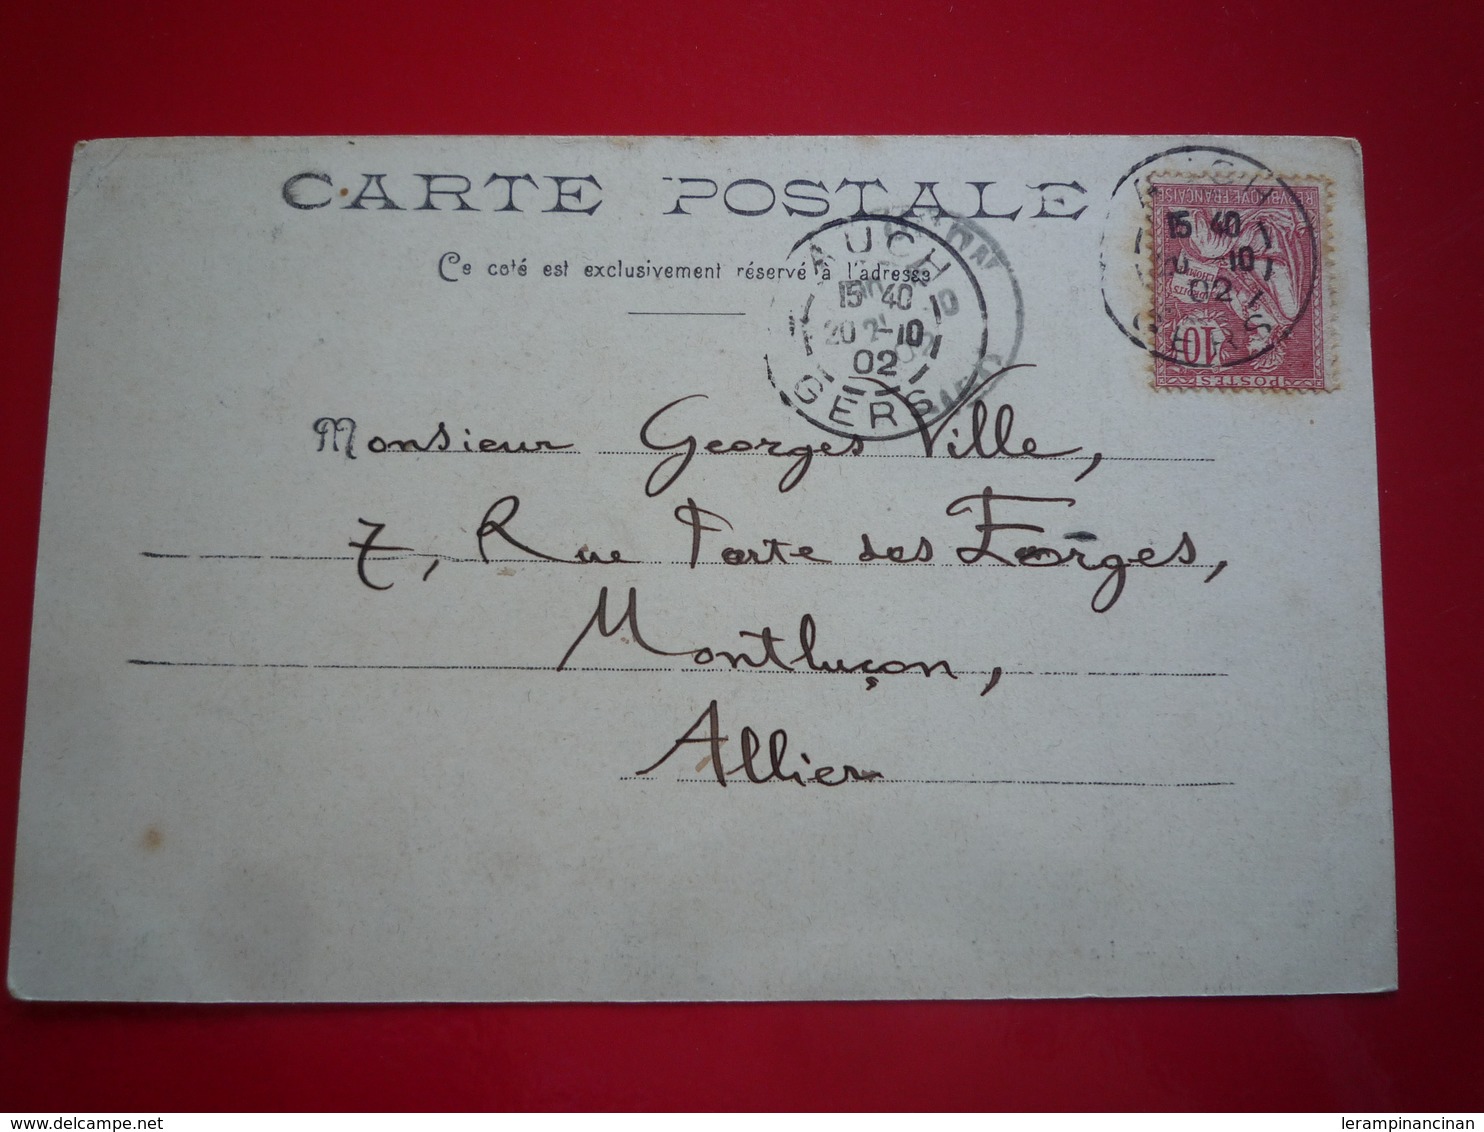 CARTE POSTALE
Ce coté est exclusivement réservé à l'adresse
AUCH
15 40
20 -10
02
GERS
15 40
10
02
REPUBLIQUE FRANÇAISE
10
POSTES
Monsieur Georges Ville,
7, Rue Porte des Forges,
Montluçon,
Allier
delcampe.net
lerampinancinan